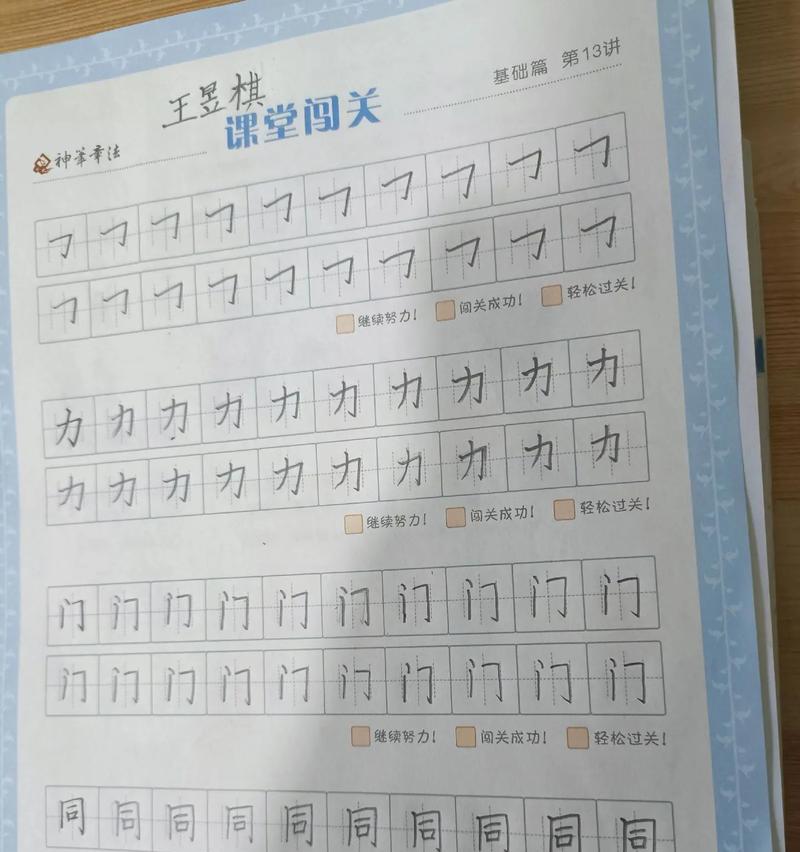 基础篇 第13讲
王昱棋
课堂闯关
神笔章法
𠃌 𠃌 𠃌 𠃌 𠃌 𠃌 𠃌 𠃌 𠃌 𠃌
𠃌 𠃌 𠃌 𠃌 𠃌 𠃌 𠃌 𠃌 𠃌 𠃌
继续努力! 闯关成功! 轻松过关!
力 力 力 力 力 力 力 力 力 力
力 力 力 力 力 力 力 力 力 力
继续努力! 闯关成功! 轻松过关!
门 门 门 门 门 门 门 门 门 门
门 门 门 门 门 门 门 门 门 门
继续努力! 闯关成功! 轻松过关!
同 同 同 同 同 同 同 同 同 同